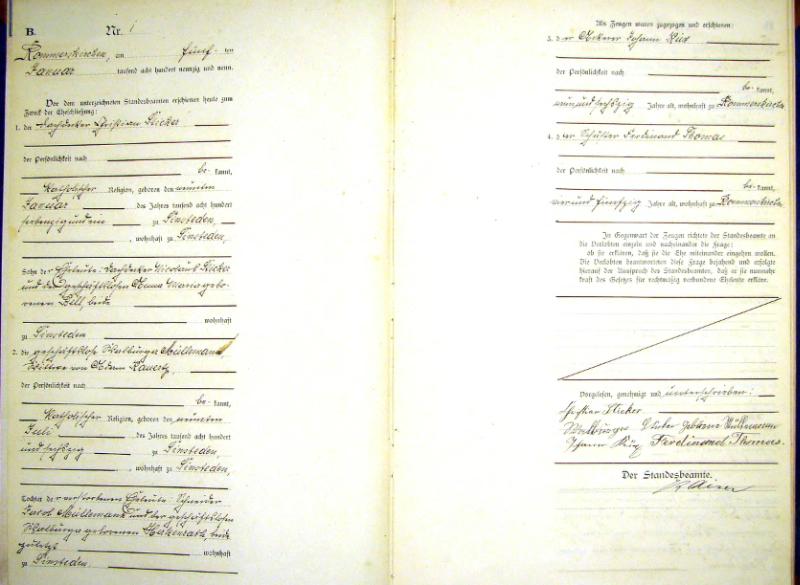 B. Nr. 1
Rommerskirchen, am fünf ten
Januar tausend acht hundert neunzig und neun.
Vor dem unterzeichneten Standesbeamten erschienen heute zum
Zweck der Eheschließung:
1. der Dachdecker Christian Sticker
der Persönlichkeit nach
be- kannt,
Katholischer Religion, geboren den neunten
Januar des Jahres tausend acht hundert
siebenzig und ein zu Sinsteden,
, wohnhaft zu Sinsteden,
Sohn der Eheleute: Dachdecker Nicolaus Sticker
und der geschäftslosen Anna Maria gebo-
renen beide
wohnhaft
zu Sinsteden
2. die geschäftslose Walburga Müllemann,
Wittwe von Adam Kauertz
der Persönlichkeit nach
be- kannt,
Katholischer Religion, geboren den neunten
Juli des Jahres tausend acht hundert
und sechszig zu Sinsteden,
, wohnhaft zu Sinsteden,
Tochter der verstorbenen Eheleute: Schneider
Jacob Müllemann und der geschäftslosen
Walburga geborenen beide
zuletzt wohnhaft
zu Sinsteden.
Als Zeugen waren zugezogen und erschienen:
3. der Ackerer Johann
der Persönlichkeit nach
be- kannt,
neunundsechszig Jahre alt, wohnhaft zu Rommerskirchen
4. der Schuster Ferdinand Thomas
der Persönlichkeit nach
be- kannt,
vierundfünfzig Jahre alt, wohnhaft zu Rommerskirchen
In Gegenwart der Zeugen richtete der Standesbeamte an
die Verlobten einzeln und nacheinander die Frage:
ob sie erklären, daß sie die Ehe miteinander eingehen wollen.
Die Verlobten beantworteten diese Frage bejahend und erfolgte
hierauf der Ausspruch des Standesbeamten, daß er sie nunmehr
kraft des Gesetzes für rechtmäßig verbundene Eheleute erkläre.
Vorgelesen, genehmigt und unterschrieben:
Sticker
Walburga geborene Müllemann
Johann Ferdinand Thomas.
Der Standesbeamte.